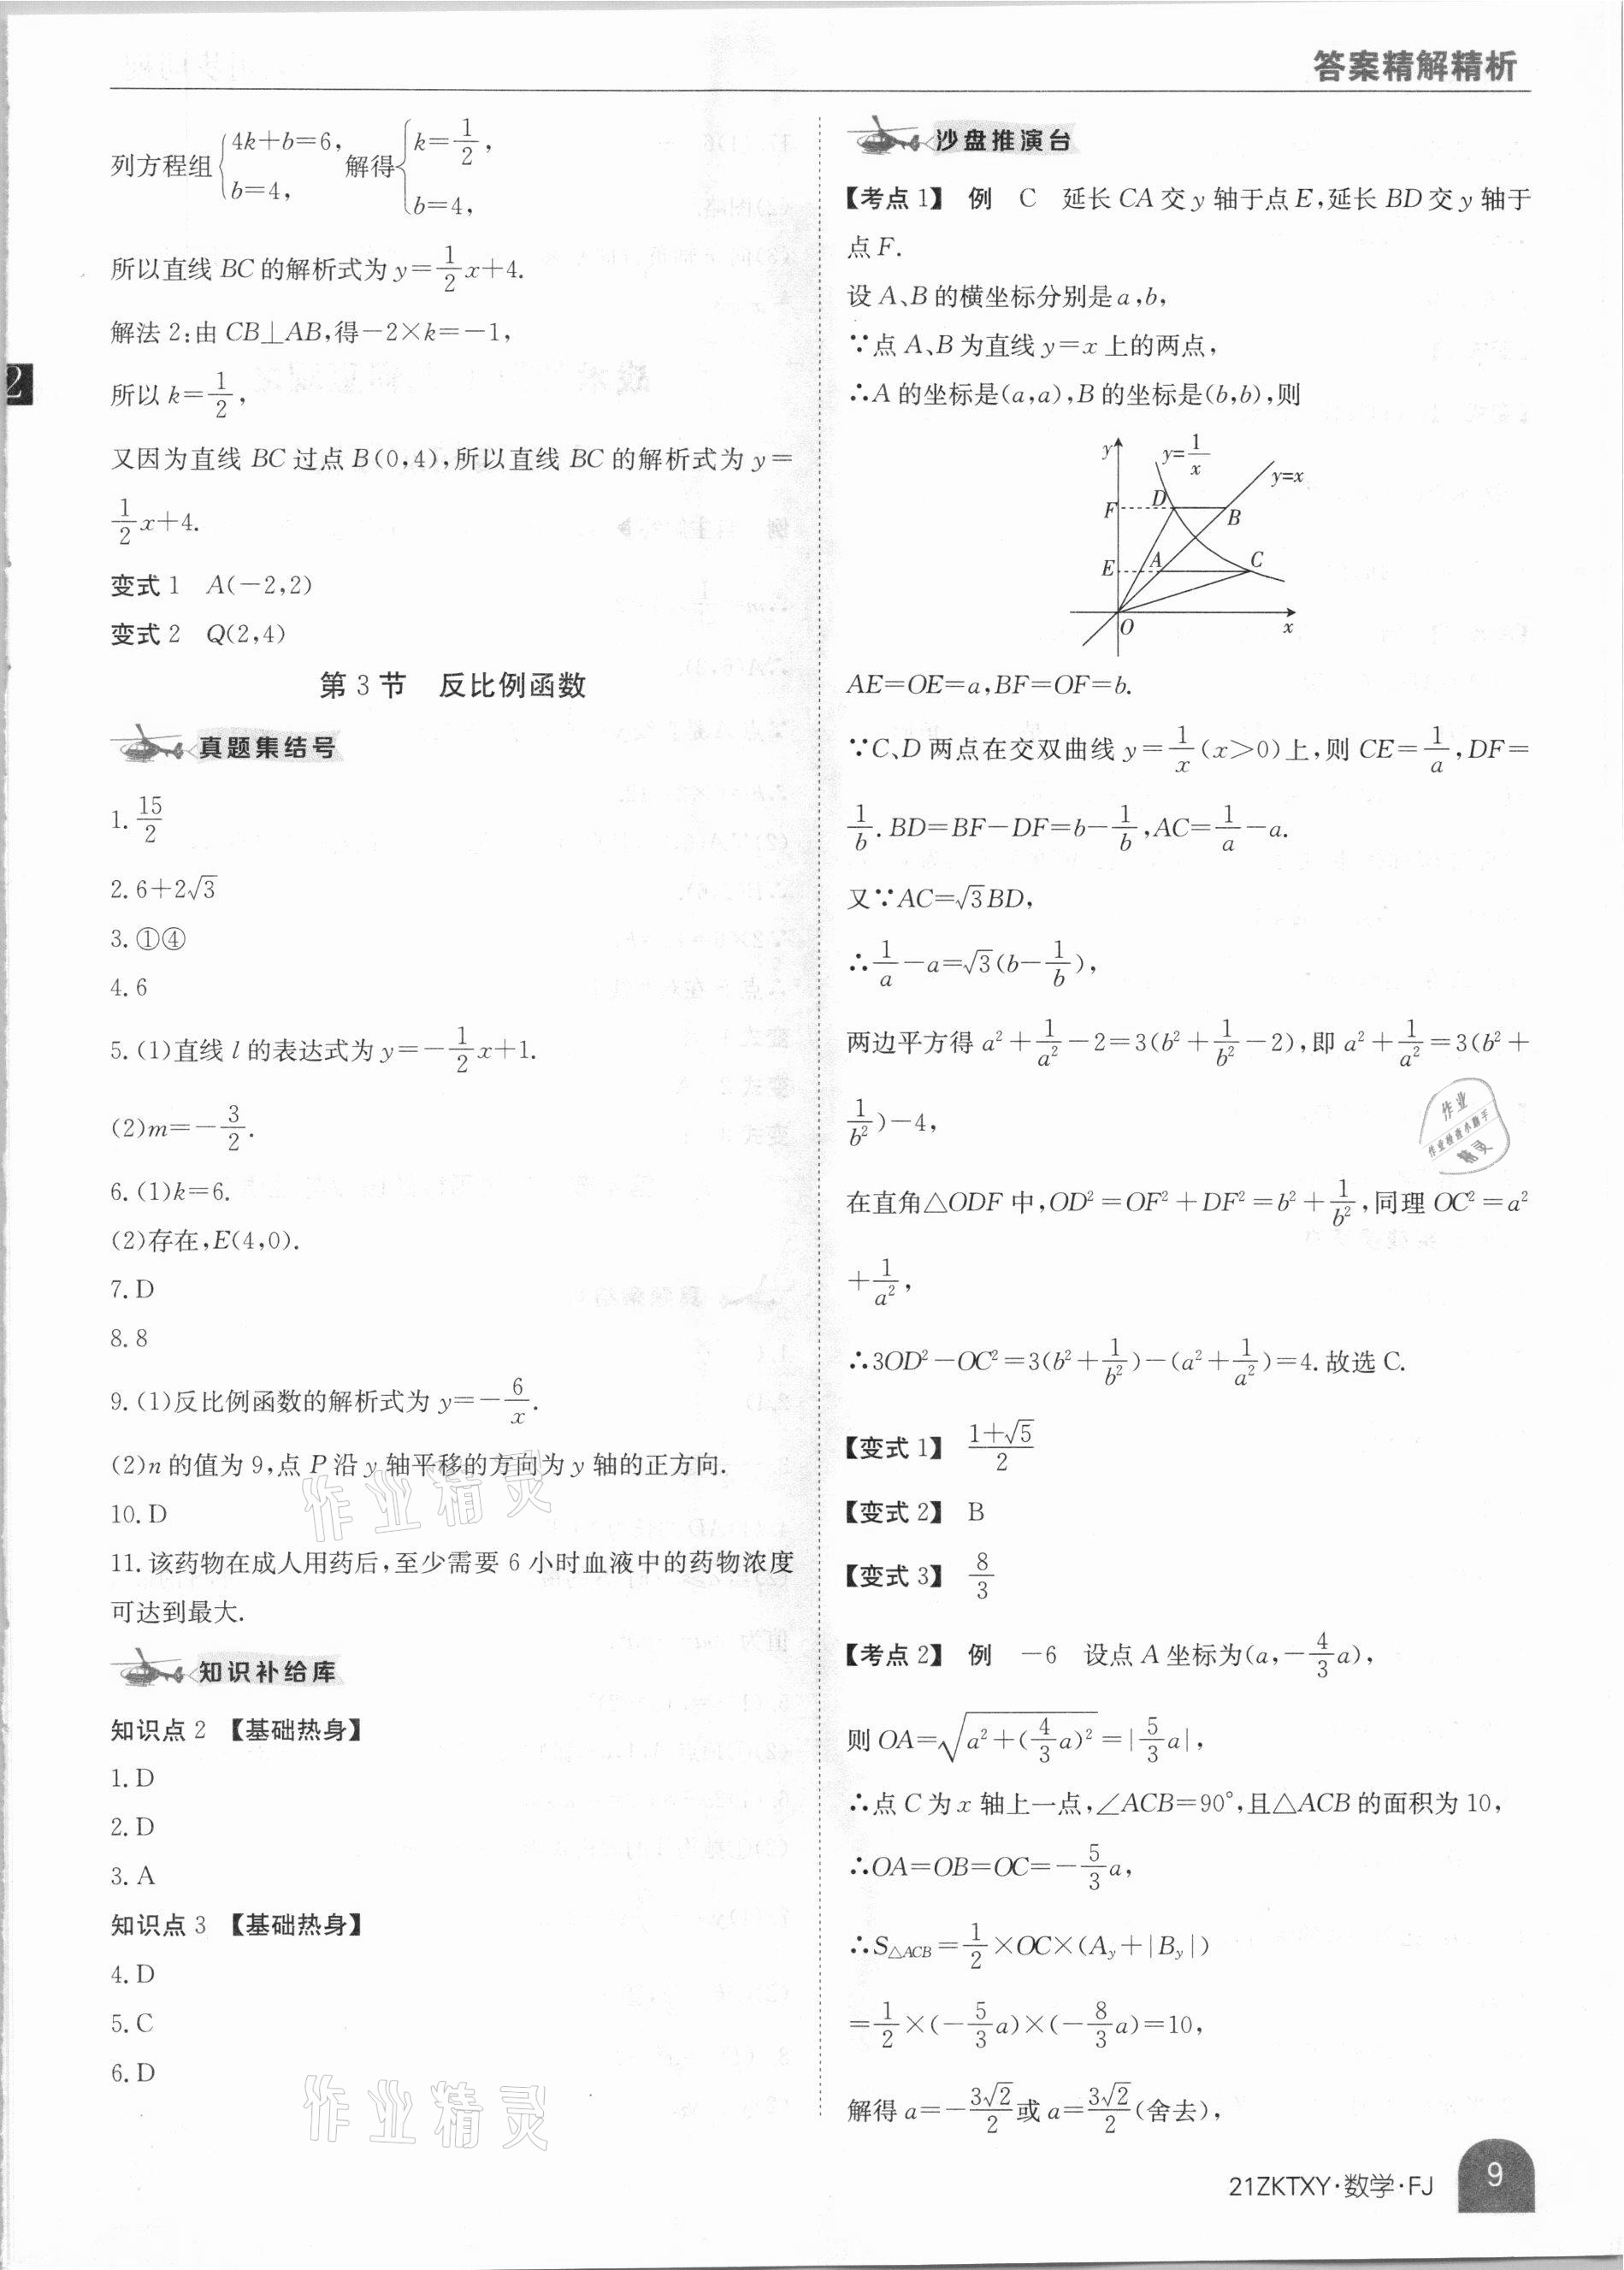 答案精解精析
列方程组{4k+b=6, b=4, 解得{k=1/2, b=4,
所以直线 BC 的解析式为 y=1/2x+4.
解法 2:由 CB⊥AB,得-2×k=-1,
所以 k=1/2,
又因为直线 BC 过点 B(0,4),所以直线 BC 的解析式为 y=
1/2x+4.
变式 1 A(-2,2)
变式 2 Q(2,4)
第 3 节 反比例函数
真题集结号
1. 15/2
2. 6+2√3
3. ①④
4. 6
5. (1)直线 l 的表达式为 y=-1/2x+1.
(2)m=-3/2.
6. (1)k=6.
(2)存在,E(4,0).
7. D
8. 8
9. (1)反比例函数的解析式为 y=-6/x.
(2)n 的值为 9,点 P 沿 y 轴平移的方向为 y 轴的正方向.
10. D
11. 该药物在成人用药后,至少需要 6 小时血液中的药物浓度
可达到最大.
知识补给库
知识点 2 【基础热身】
1. D
2. D
3. A
知识点 3 【基础热身】
4. D
5. C
6. D
作业精灵
作业精灵
2
沙盘推演台
【考点 1】 例 C 延长 CA 交 y 轴于点 E,延长 BD 交 y 轴于
点 F.
设 A、B 的横坐标分别是 a,b,
∵点 A、B 为直线 y=x 上的两点,
∴A 的坐标是(a,a),B 的坐标是(b,b),则
y y=1/x
y=x
F D B
E A C
O x
AE=OE=a,BF=OF=b.
∵C、D 两点在交双曲线 y=1/x(x>0)上,则 CE=1/a,DF=
1/b. BD=BF-DF=b-1/b,AC=1/a-a.
又∵AC=√3BD,
∴1/a-a=√3(b-1/b),
两边平方得 a²+1/a²-2=3(b²+1/b²-2),即 a²+1/a²=3(b²+
1/b²)-4,
作业
作业检查小助手
精灵
在直角△ODF 中,OD²=OF²+DF²=b²+1/b²,同理 OC²=a²
+1/a²,
∴3OD²-OC²=3(b²+1/b²)-(a²+1/a²)=4. 故选 C.
【变式 1】 (1+√5)/2
【变式 2】 B
【变式 3】 8/3
【考点 2】 例 -6 设点 A 坐标为(a,-4/3a),
则 OA=√(a²+(4/3a)²)=|5/3a|,
∴点 C 为 x 轴上一点,∠ACB=90°,且△ACB 的面积为 10,
∴OA=OB=OC=-5/3a,
∴S△ACB=1/2×OC×(Ay+|By|)
=1/2×(-5/3a)×(-8/3a)=10,
解得 a=-3√2/2或 a=3√2/2(舍去),
21ZKTXY·数学·FJ 9